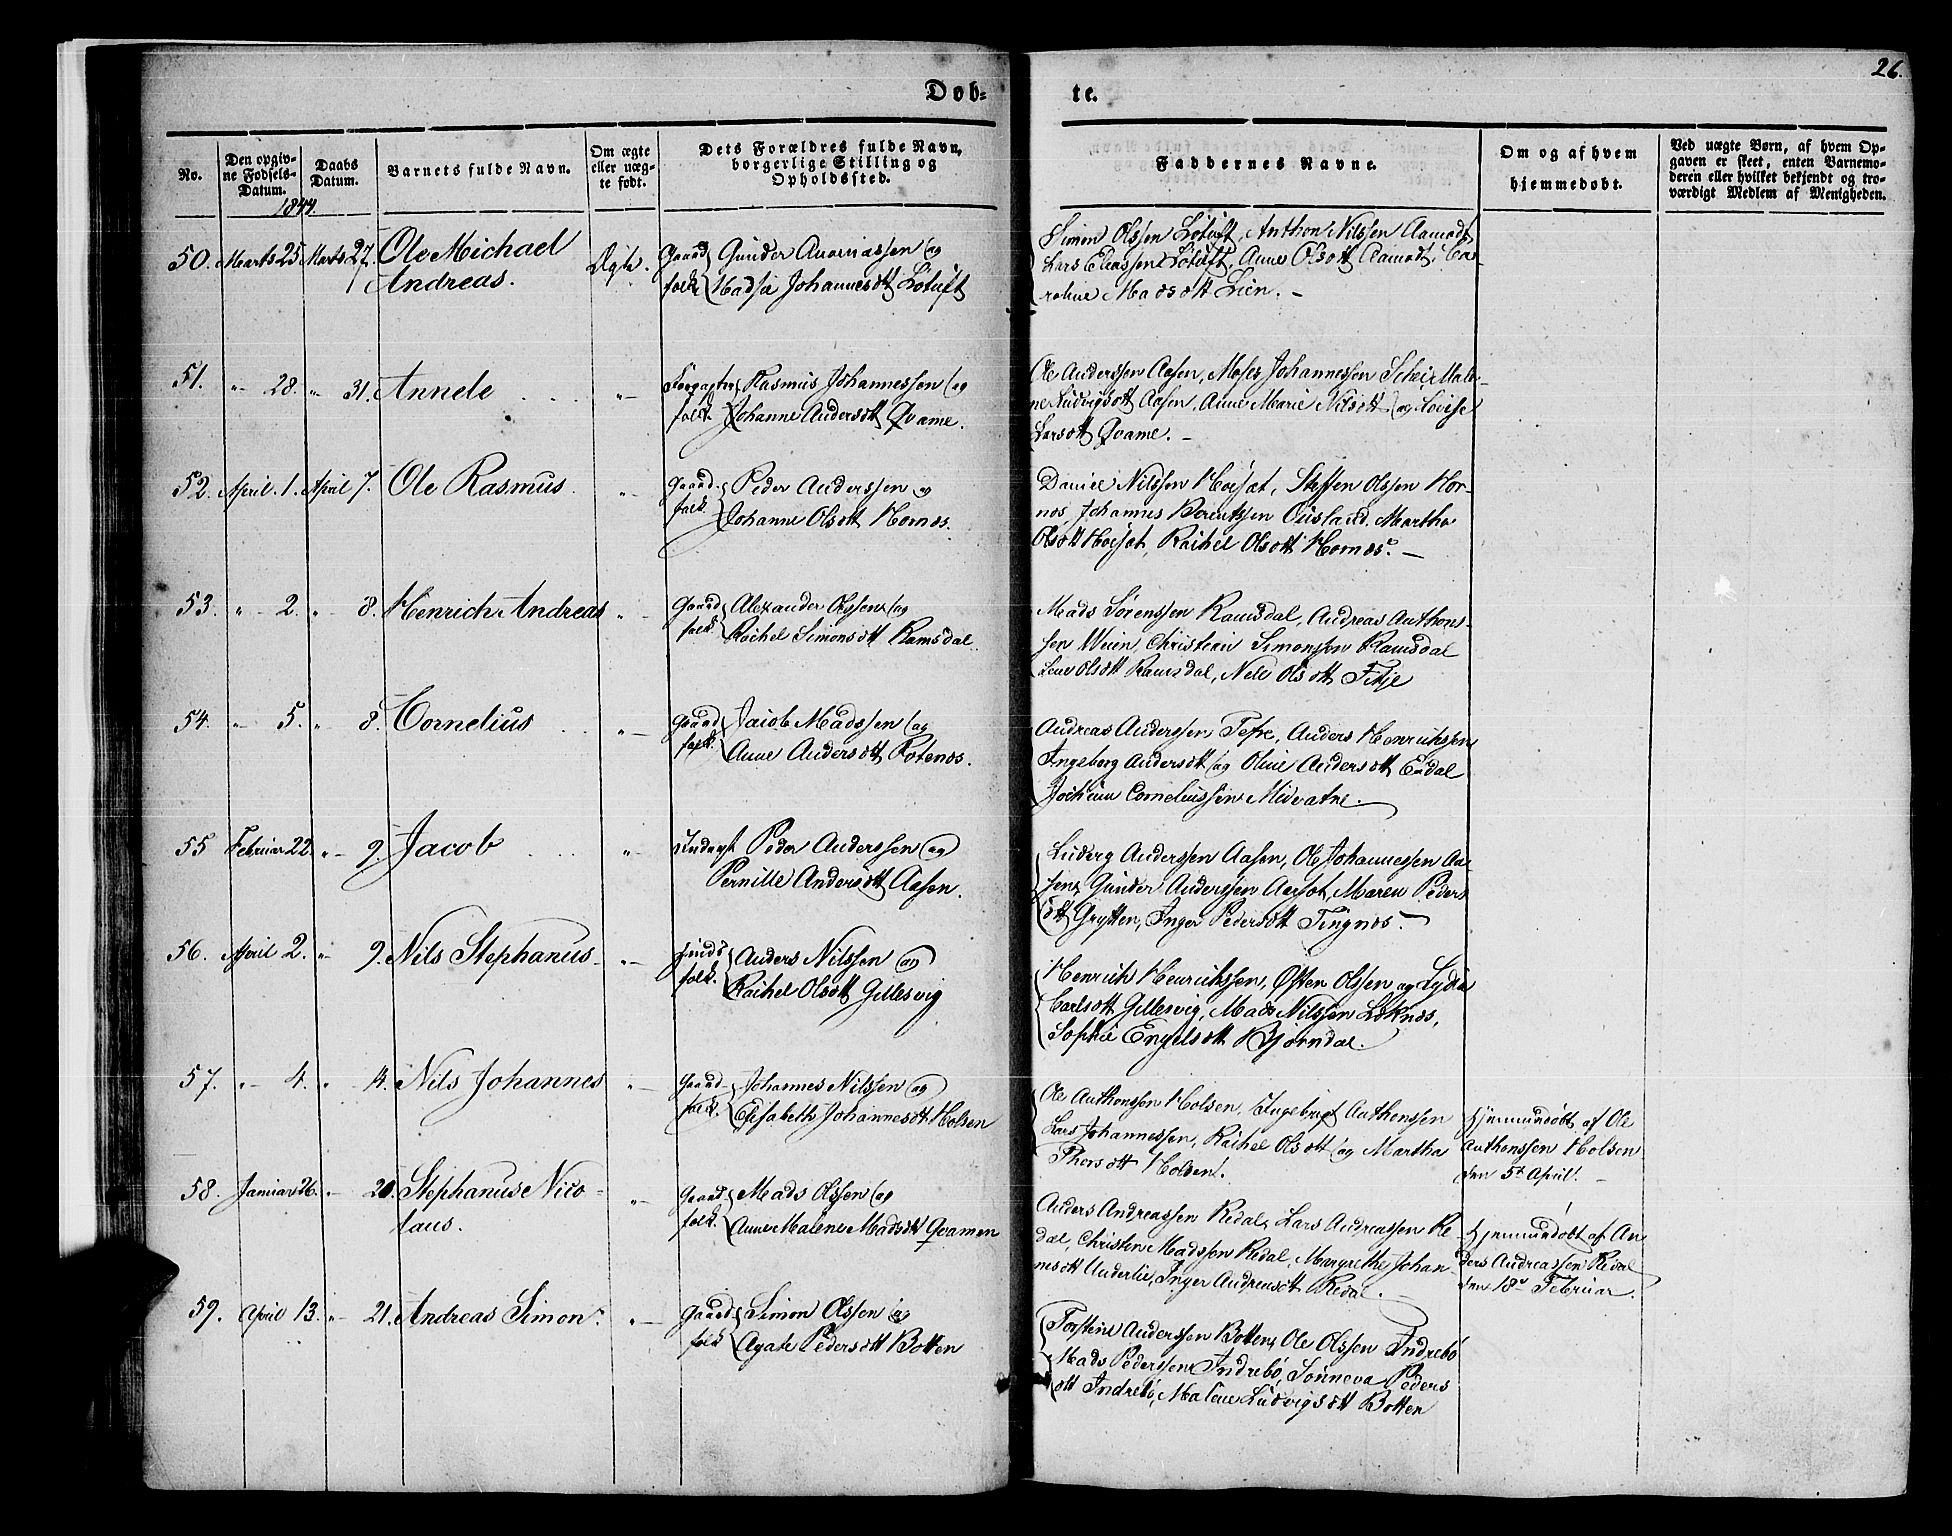 26.
Døb-
te.
No.
Den opgiv-
ne Fødsels-
Datum.
Daabs
Datum.
Barnets fulde Navn.
Om ægte
eller uæg-
te født.
Dets Forældres fulde Navn,
borgerlige Stilling og
Opholdssted.
Faddernes Navne.
Om og af hvem
hjemmedøbt.
Ved uægte Børn, af hvem Op-
gaven er skeet, enten Barnemo-
deren eller hvilket bekjendt og tro-
værdigt Medlem af Menigheden.
1844.
50. Marts 25 Marts 27. Ole Michael
Andreas.
Ægte.
Gaard Gunder Ananiassen og
folk Madsie Johannesdtt Løtuft
Simon Olssen Løtuft, Anthon Nilssen Aamodt,
Lars Eliassen Løtuft, Anne Olsdtt Aamodt, Ca-
roline Madsdtt Lien. -
51. " 28. " 31. Annele
" Rasmus Johannessen og
folk Johanne Andersdtt Qvame.
Ole Anderssen Aasen, Moses Johannessen Schei, Male-
ne Ludvigsdtt Aasen, Anne Marie Nilsdtt og Lovise
Larsdtt Qvame. -
52. April. 1. April 7. Ole Rasmus
" Gaard- Peder Anderssen og
folk Johanne Olsdtt Hornæs.
Daniel Nilssen Høisæt, Steffen Olssen Hor-
næs, Johannes Berentssen Ousland, Martha
Olsdtt Høisæt, Rachel Olsdtt Hornæs. -
53. " 2. " 8. Henrich Andreas
" Gaard Alexander Olssen og
folk. Rachel Simonsdtt Ramsdal.
Mads Sørenssen Ramsdal, Andreas Anthons-
sen Weien, Christian Simonssen Ramsdal
Lene Olsdtt Ramsdal, Nele Olsdtt Fitje
54. " 5. " 8. Cornelius
" Gaard Jacob Madssen og
folk. Anne Andersdtt Rotenæs.
Andreas Anderssen Tefre, Anders Henrichssen
Ingeborg Andersdtt og Oline Andersdtt Erdal
Jochum Corneliussen Midvatne.
55 Februar 22. " 9. Jacob
" Inderst Peder Anderssen og
Pernille Andersdtt Aasen.
Ludvig Anderssen Aasen, Ole Johannessen Aa-
sen, Gunder Anderssen Aarsæt, Maren Peders
dtt Grytten, Inger Pedersdtt Tingnæs. -
56. April 2. " 9. Nils Stephanus
" Huus folk. Anders Nilssen og
Rachel Olsdtt Gillesvig
Henrich Henrichssen, Østen Olssen og Lydia
Carlsdtt Gillesvig, Mads Nilssen Løknæs,
Sophie Engelsdtt Bjørndal.
57. " 4. " 14. Nils Johannes
" Gaard- Johannes Nilssen og
folk. Elisabeth Johannesdtt Holsen
Ole Anthonssen Holsen, Ingebrigt Anthonssen
Lars Johannessen, Rachel Olsdtt og Martha
Thorsdtt Holsen.
Hjemmedøbt af Ole
Anthonssen Holsen
den 5t April. -
58. Januar 26. " 20. Stephanus Nico-
laus.
" Gaard Mads Olssen og
folk. Anne Malene Madsdtt Qvamen
Anders Andreassen Redal, Lars Andreassen Re-
dal, Christen Madssen Redal, Margrethe Johan-
nesdtt Underlie, Inger Andreasdtt Redal. -
Hjemmedøbt af An
ders Andreassen Redal
den 18de Februar.
59. April 13. " 21. Andreas Simon.
" Gaard Simon Olssen og
folk Agate Pedersdtt Botten
Torstein Anderssen Botten, Ole Olssen Indrebø
Mads Pederssen Indrebø, Sønneva Peders
dtt Indrebø, Malene Ludvigsdtt Botten